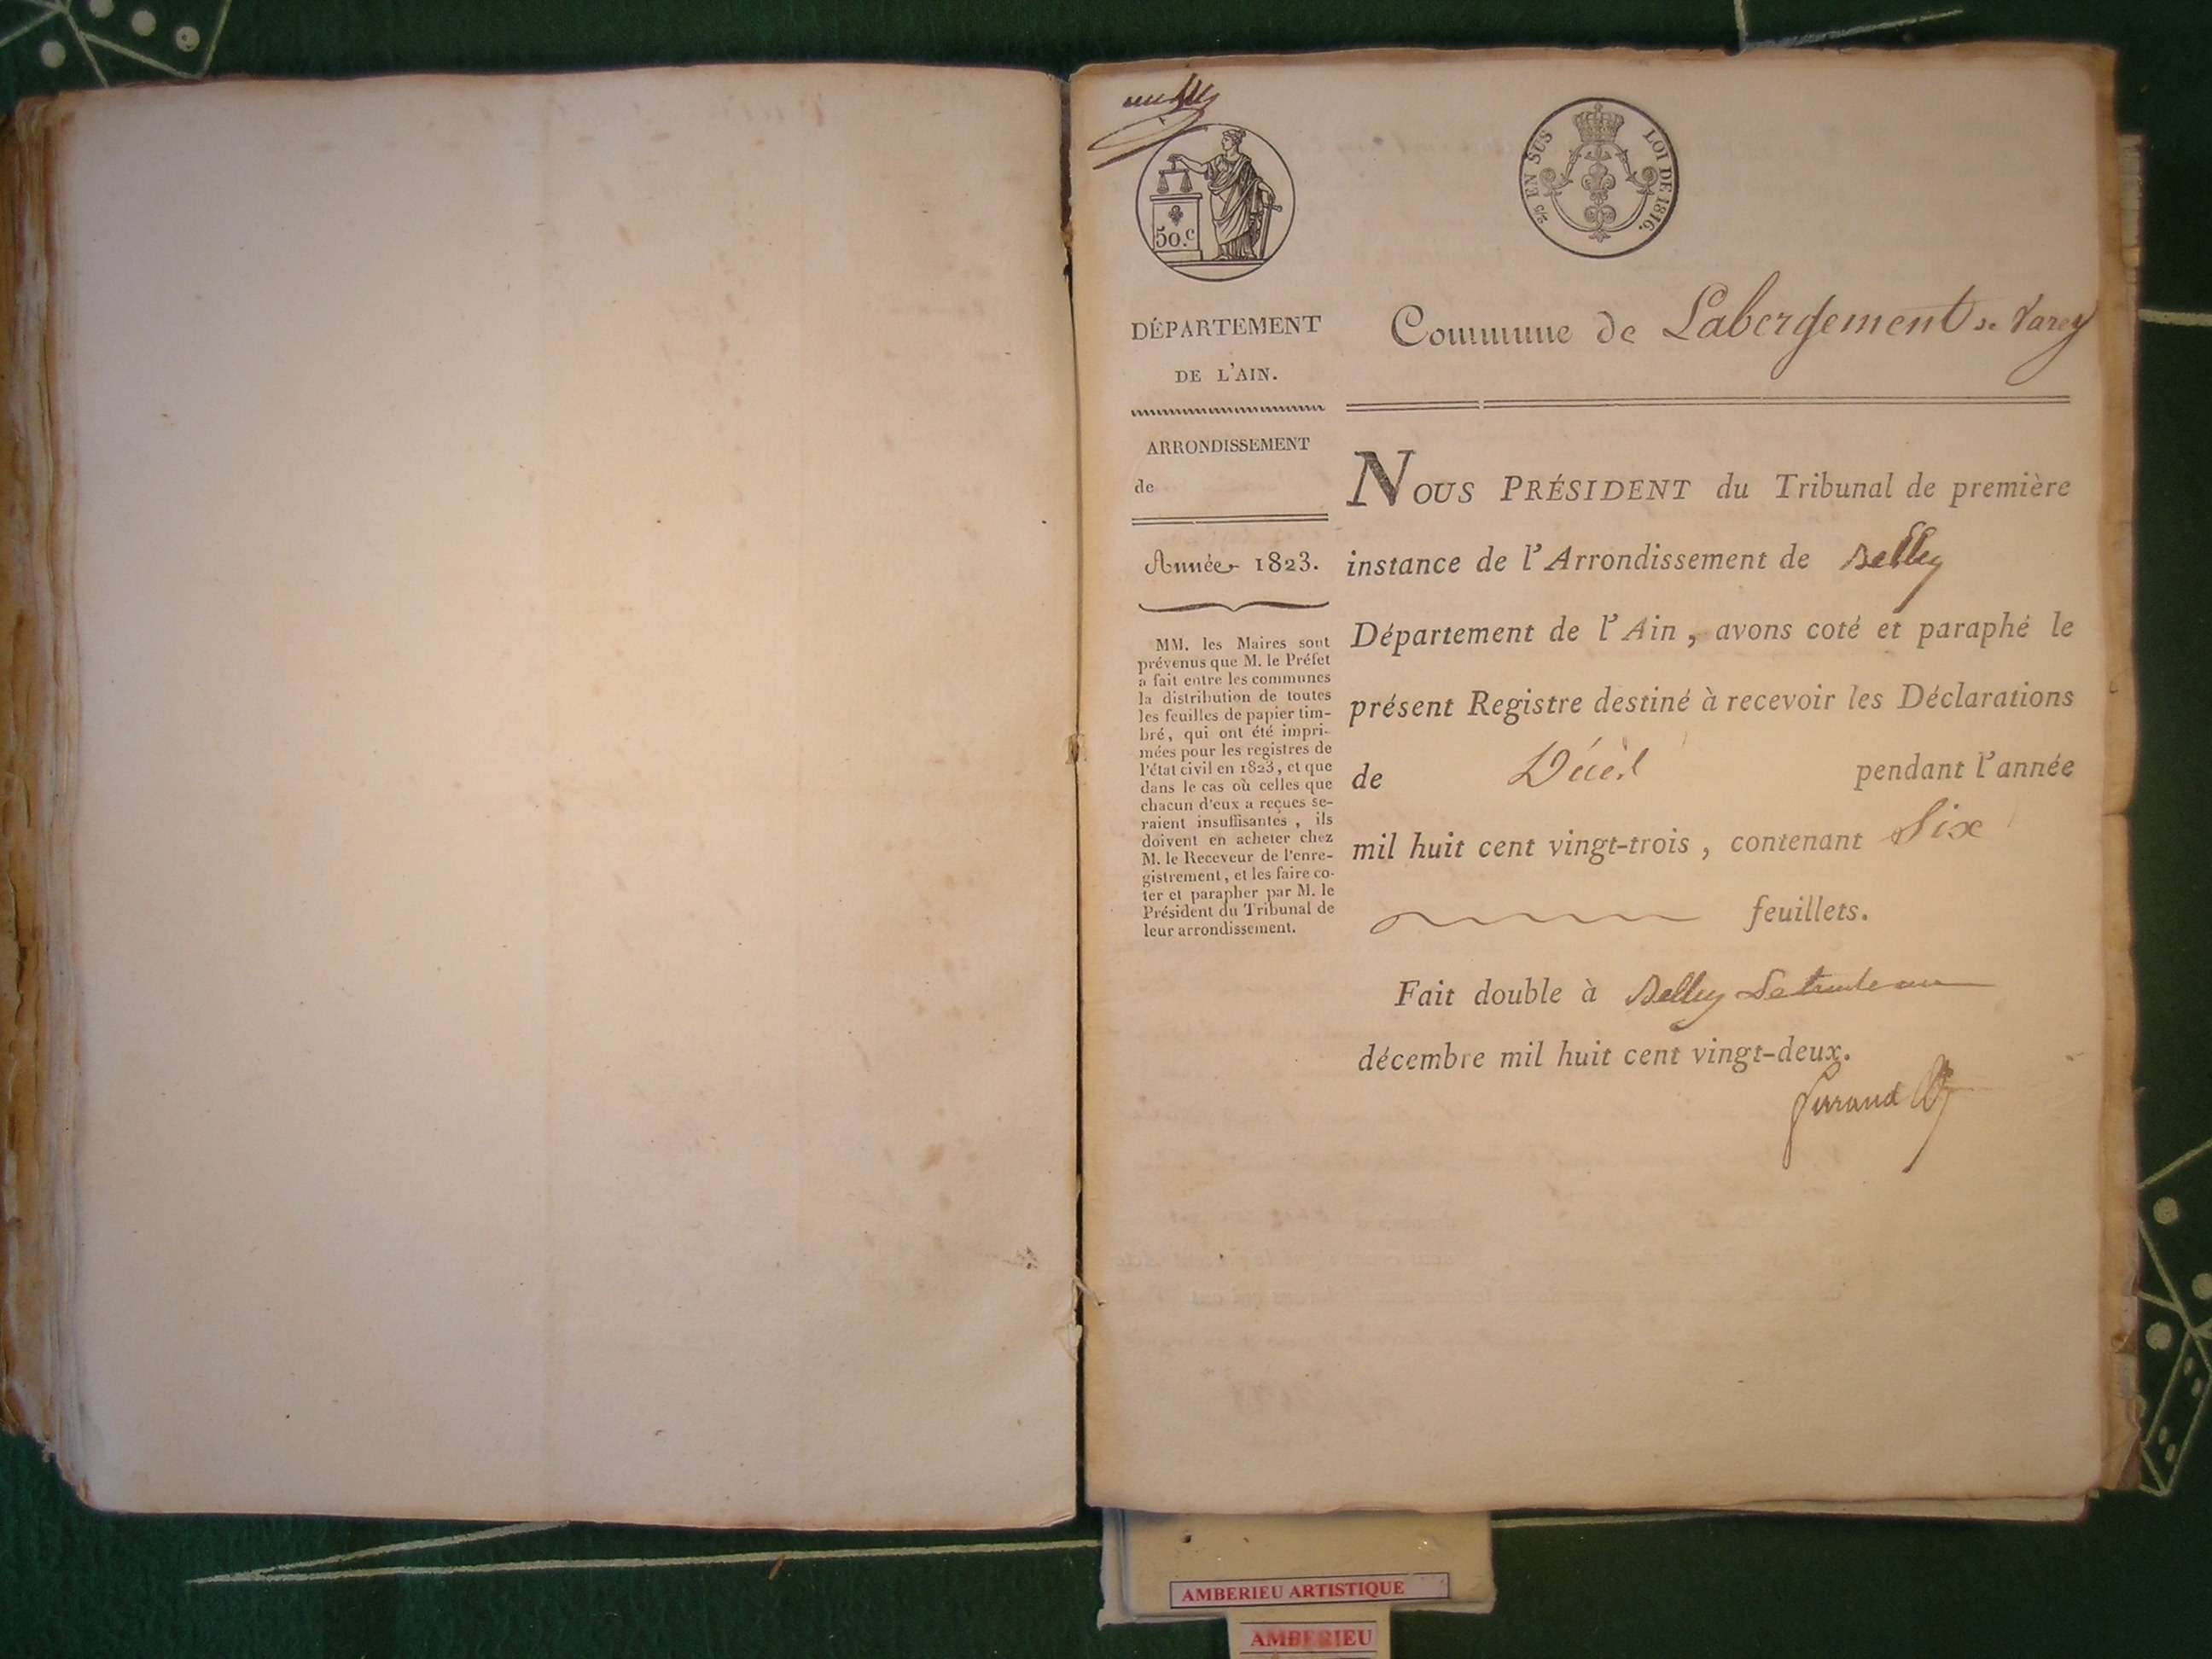 50.c
2/5 EN SUS LOI DE 1816.
DÉPARTEMENT
DE L'AIN.
ARRONDISSEMENT
de
Année 1823.
MM. les Maires sont
prévenus que M. le Préfet
a fait entre les communes
la distribution de toutes
les feuilles de papier tim-
bré, qui ont été impri-
mées pour les registres de
l'état civil en 1823, et que
dans le cas où celles que
chacun d'eux a reçues se-
raient insuffisantes, ils
doivent en acheter chez
M. le Receveur de l'enre-
gistrement, et les faire co-
ter et parapher par M. le
Président du Tribunal de
leur arrondissement.
Commune de Labergement de Varey
NOUS PRÉSIDENT du Tribunal de première
instance de l'Arrondissement de Belley
Département de l'Ain, avons coté et paraphé le
présent Registre destiné à recevoir les Déclarations
de Décès pendant l'année
mil huit cent vingt-trois, contenant Six
feuillets.
Fait double à Belley Le
décembre mil huit cent vingt-deux.
AMBERIEU ARTISTIQUE
AMBERIEU